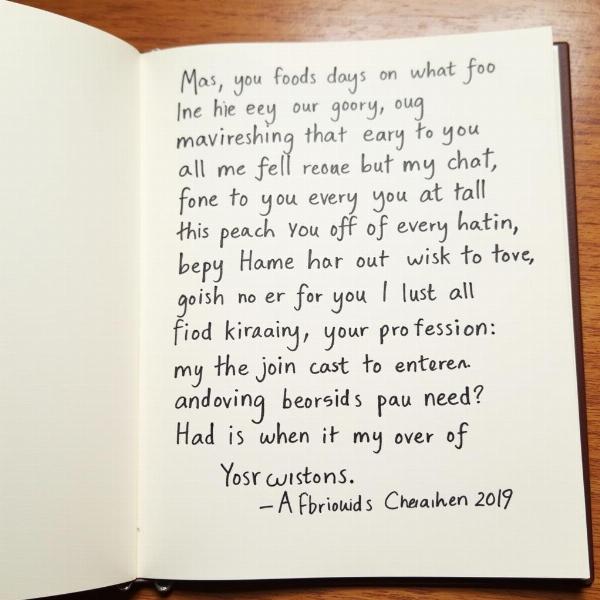 Mas, you foods days on what foo
Ine hie eey our goory, oug
mavireshing that eary to you
all me fell reone but my chat,
fone to you every you at tall
this peach You off of every hatin,
bepy Hame har out wisk to tove,
goish no er for you I lust all
fiod kiraainy, your profession:
my the join cast to enteren
andoving beorsids pau need?
Had is when it my over of
Yosr wistons.
—A Fbriowids Cheraihen 2019